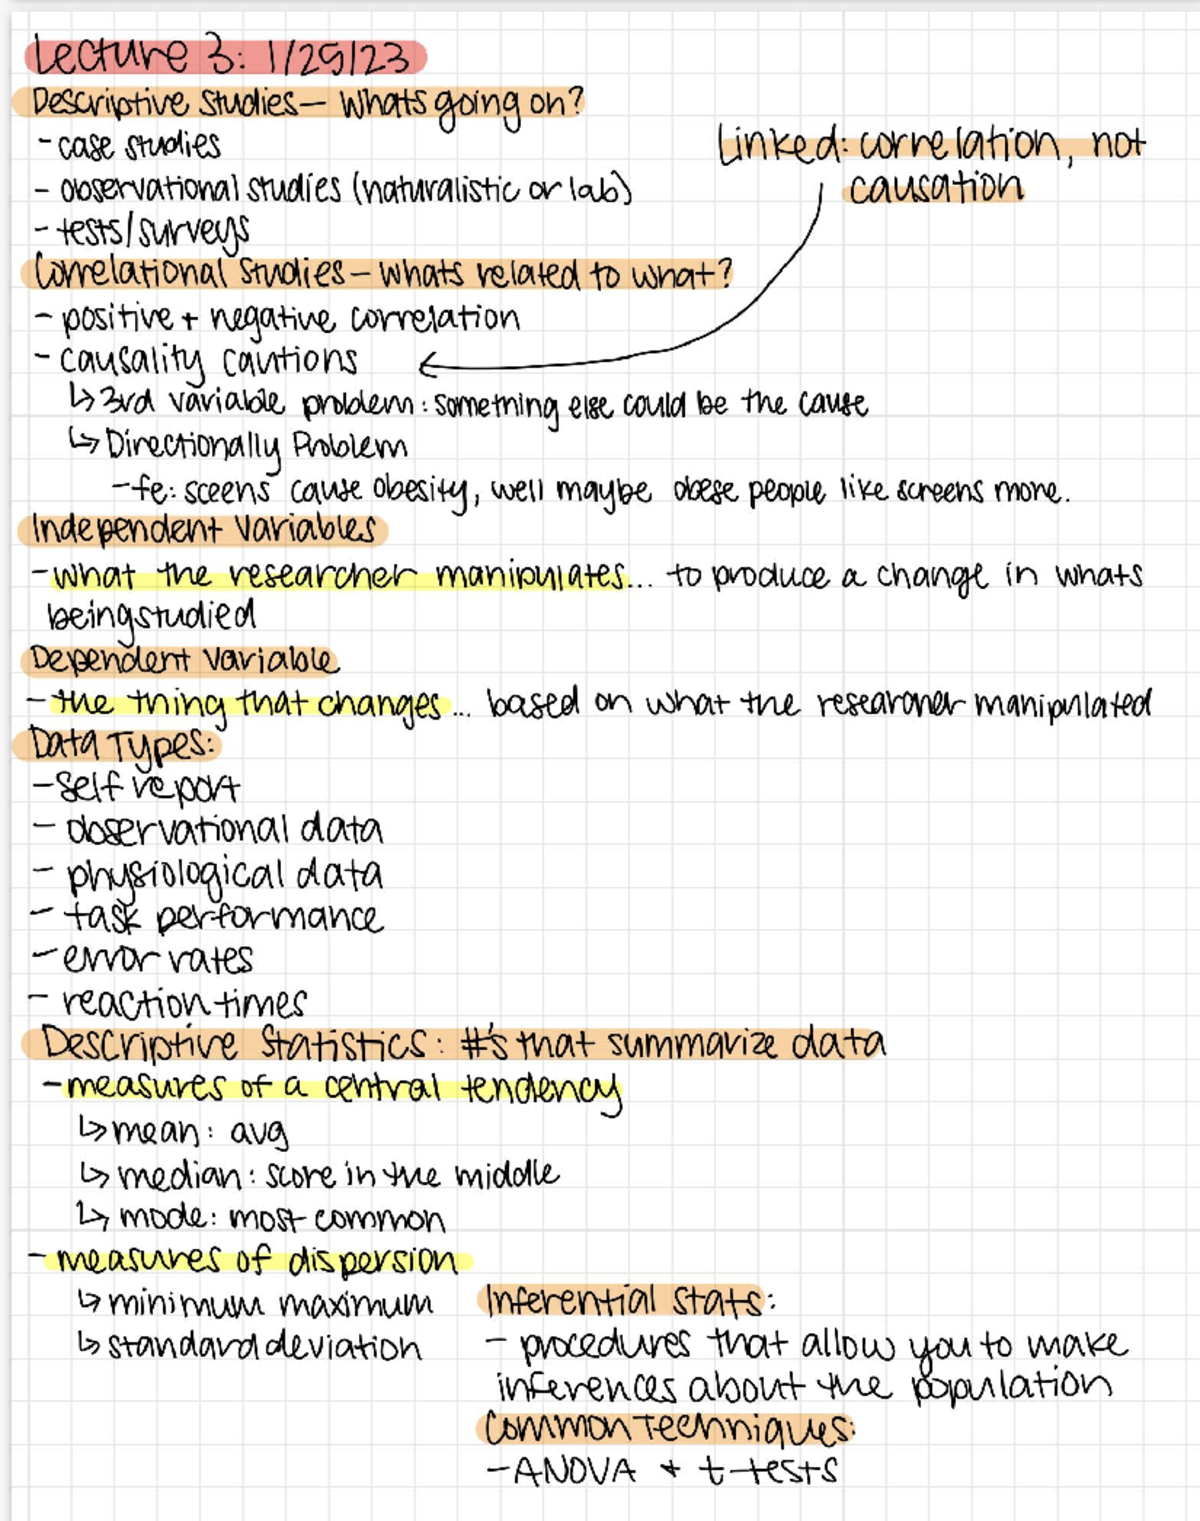 Lecture 3: 1/25/23
Descriptive Studies— Whats going on?
- case studies
- observational studies (naturalistic or lab)
- tests/surveys
Linked: correlation, not
causation
Correlational Studies — whats related to what?
- positive + negative correlation
- causality cautions
↳ 3rd variable problem: something else could be the cause
↳ Directionally Problem
- fe: sceens cause obesity, well maybe obese people like screens more.
Independent Variables
- what the researcher manipulates... to produce a change in whats
being studied
Dependent Variable
- the thing that changes... based on what the researcher manipulated
Data Types:
- Self report
- observational data
- physiological data
- task performance
- error rates
- reaction times
Descriptive Statistics: #'s that summarize data
- measures of a central tendency
↳ mean: avg
↳ median: score in the middle
↳ mode: most common
- measures of dispersion
↳ minimum maximum
↳ standard deviation
Inferential Stats:
- procedures that allow you to make
inferences about the population
Common Techniques:
- ANOVA + t-tests